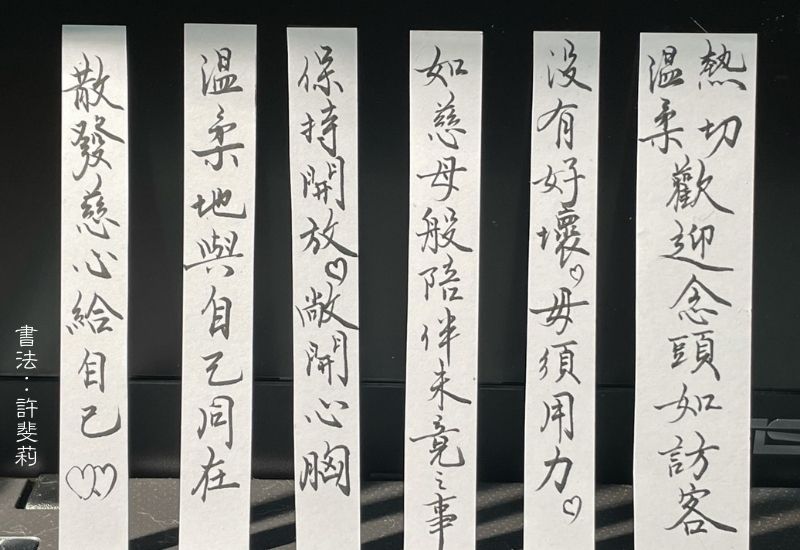 熱切溫柔歡迎念頭如訪客
沒有好壞♡毋須用力♡
如慈母般陪伴未竟之事
保持開放♡敞開心胸
溫柔地與自己同在
散發慈心給自己♡♡
書法：許斐莉